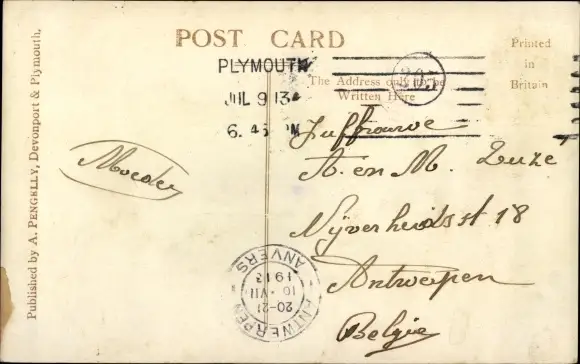 POST CARD
Printed
in
Britain
The Address only to be
Written Here
PLYMOUTH
JUL 9 13
6. 45 PM
Juffrouwe
A. en M.
Nijverheidsst 18
Antwerpen
Belgie
Moeder
Published by A. PENGELLY, Devonport & Plymouth.
ANTWERPEN
20-21
10 · VII
1913
ANVERS